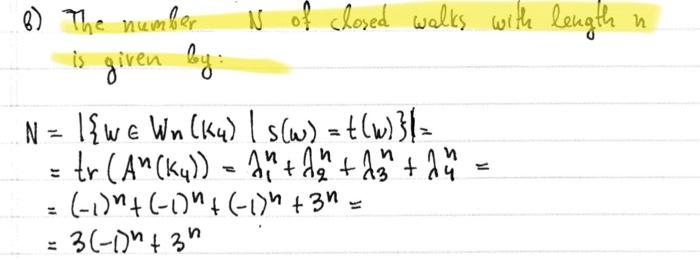 8) The number N of closed walks with length n
is given by:
N = |{w ∈ Wn(K4) | s(w) = t(w)}| =
= tr(Aⁿ(K4)) = λ₁ⁿ + λ₂ⁿ + λ₃ⁿ + λ₄ⁿ =
= (-1)ⁿ + (-1)ⁿ + (-1)ⁿ + 3ⁿ =
= 3(-1)ⁿ + 3ⁿ